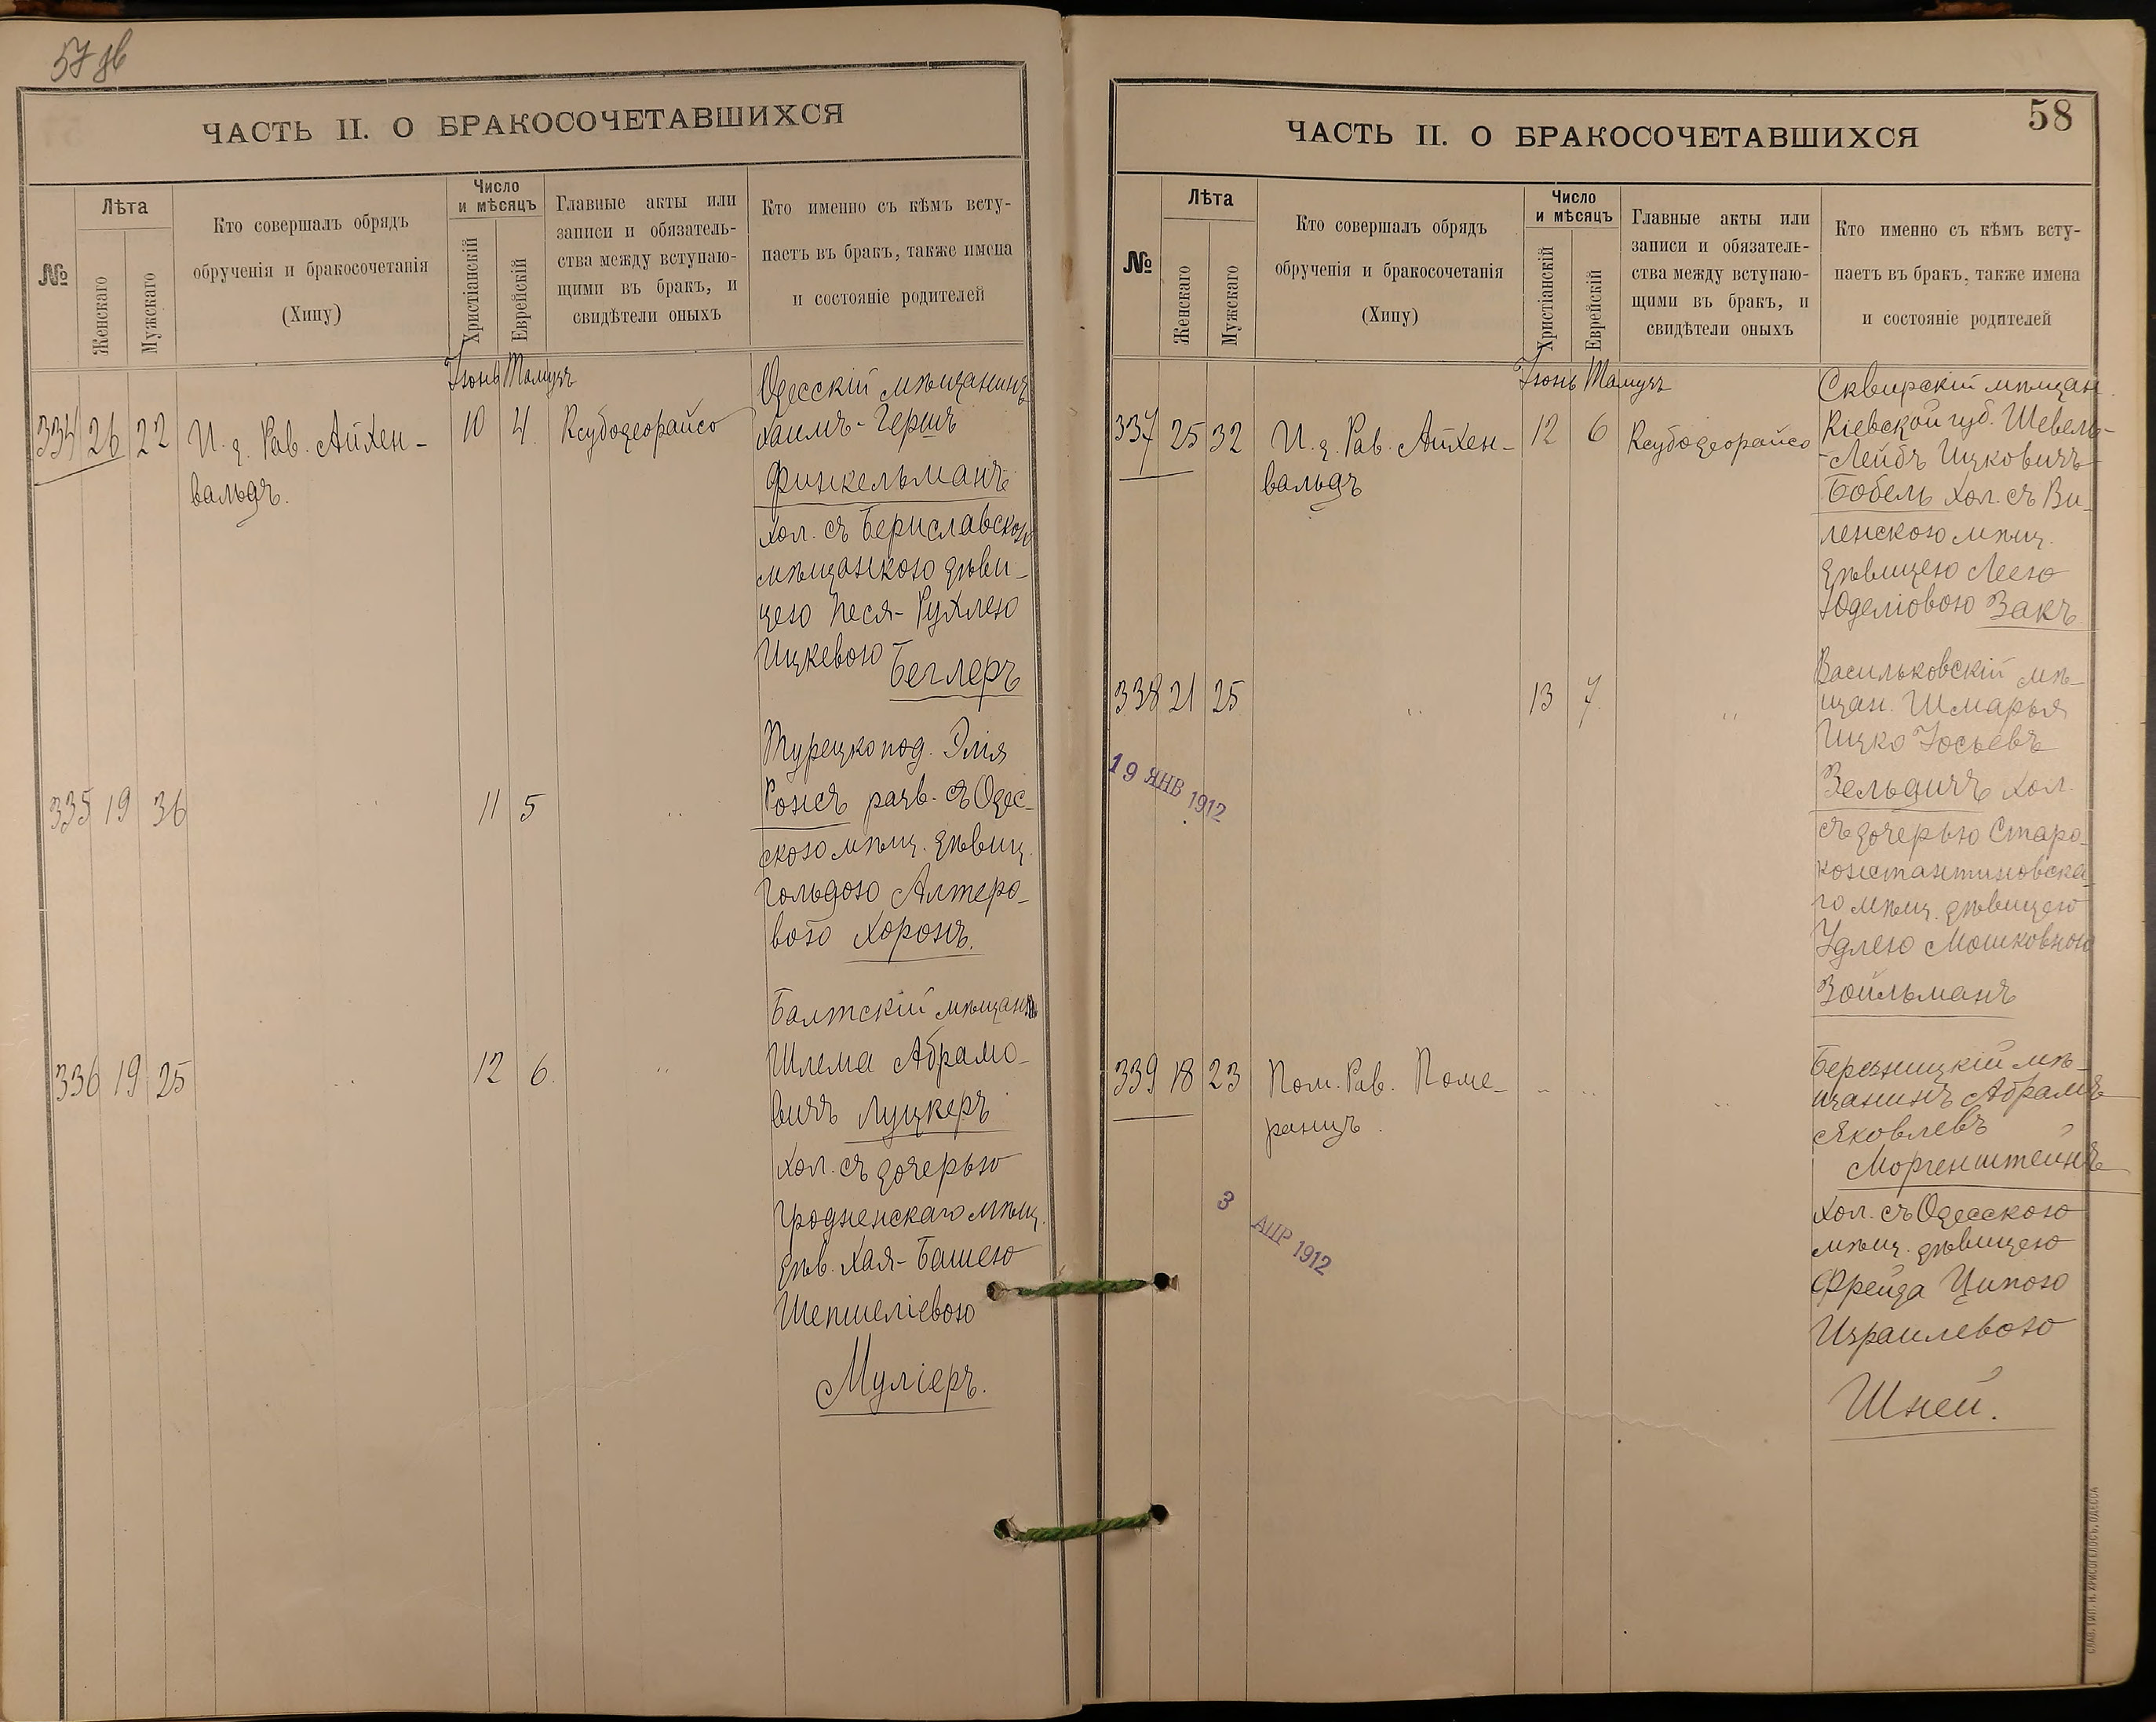 57 об
ЧАСТЬ II. О БРАКОСОЧЕТАВШИХСЯ
№
Лѣта
Женскаго
Мужскаго
Кто совершалъ обрядъ
обрученія и бракосочетанія
(Хипу)
Число
и мѣсяцъ
Христіанскій
Еврейскій
Главные акты или
записи и обязатель-
ства между вступаю-
щими въ бракъ, и
свидѣтели оныхъ
Кто именно съ кѣмъ всту-
паетъ въ бракъ, также имена
и состояніе родителей
Іюнь Тамузъ
334 26 22 И. д. Рав. Айхен-
вальдъ.
10 4. Ксубодеорайсо
Одесскій мѣщанинъ
Хаимъ-Гершъ
Финкельманъ
хол. съ Бериславскою
мѣщанкою дѣви-
цею Песя-Рухлею
Ицкевою
Беглеръ
335 19 36 " 11 5 "
Турецкопод. Элія
Розисъ разв. съ Одес-
скою мѣщ. дѣвиц.
Гольдою Алтеро-
вою Хоронъ.
336 19 25 " 12 6. "
Балтскій мѣщан.
Шлема Абрамо-
вичъ Луцкеръ
хол. съ дочерью
Гродненскаго мѣщ.
дѣв. Хая-Башею
Шепшеліевою
Муліеръ.
58
ЧАСТЬ II. О БРАКОСОЧЕТАВШИХСЯ
№
Лѣта
Женскаго
Мужскаго
Кто совершалъ обрядъ
обрученія и бракосочетанія
(Хипу)
Число
и мѣсяцъ
Христіанскій
Еврейскій
Главные акты или
записи и обязатель-
ства между вступаю-
щими въ бракъ, и
свидѣтели оныхъ
Кто именно съ кѣмъ всту-
паетъ въ бракъ, также имена
и состояніе родителей
Іюнь Тамузъ
337 25 32 И. д. Рав. Айхен-
вальдъ
12 6 Ксубодеорайсо
Сквирскій мѣщан.
Кіевской губ. Шевель-
-Лейбъ Ицковичъ
Бобель хол. съ Ви-
ленскою мѣщ.
дѣвицею Леею
Юделіовою Закъ
338 21 25 " 13 7. "
Васильковскій мѣ-
щан. Шмарья
Ицко Іосьевъ
Зельдичъ хол.
съ дочерью Старо-
константиновска-
го мѣщ. дѣвицею
Удлею Мошковною
Зойльманъ
19 ЯНВ 1912
339 18 23 Пом. Рав. Поме-
ранцъ.
" " "
Березницкій мѣ-
щанинъ Абрамъ
Яковлевъ
Моргенштейнъ
хол. съ Одесскою
мѣщ. дѣвицею
Фрейда Ципою
Израилевою
Шней.
3 АПР 1912
СЛАВ. ТИП. Н. ХРИСОГЕЛОСЪ, ОДЕССА